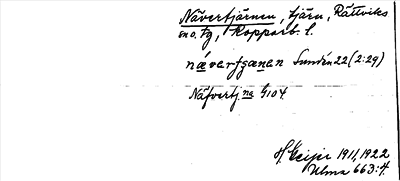 Nävertjärnen, tjärn, Rättviks
sn o. tg, Kopparb. l.
nävertjænen Sundén 22 (2:29)
Näfvertj. na G104.
H. Geijer 1911, 1922
Ulma 663:4.